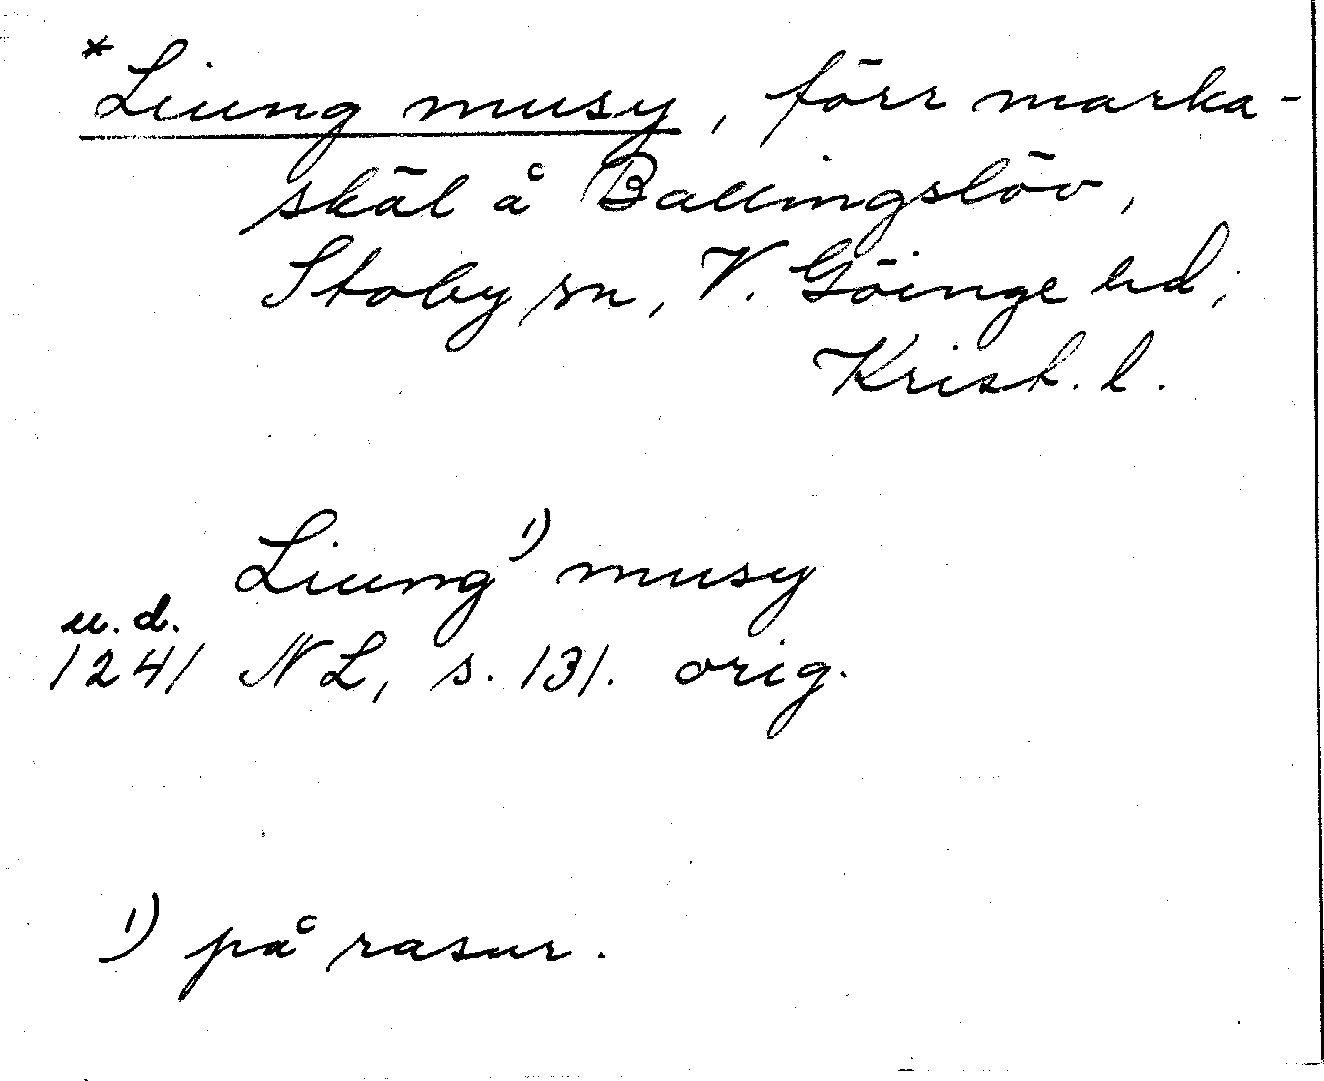 *Liung musy, förr marka-
skäl å Ballingslöv,
Stoby sn, V. Göinge hd,
Krist. l.
Liung¹⁾ musy
u. d.
1241 NL, s. 131. orig.
¹⁾ på rasur.